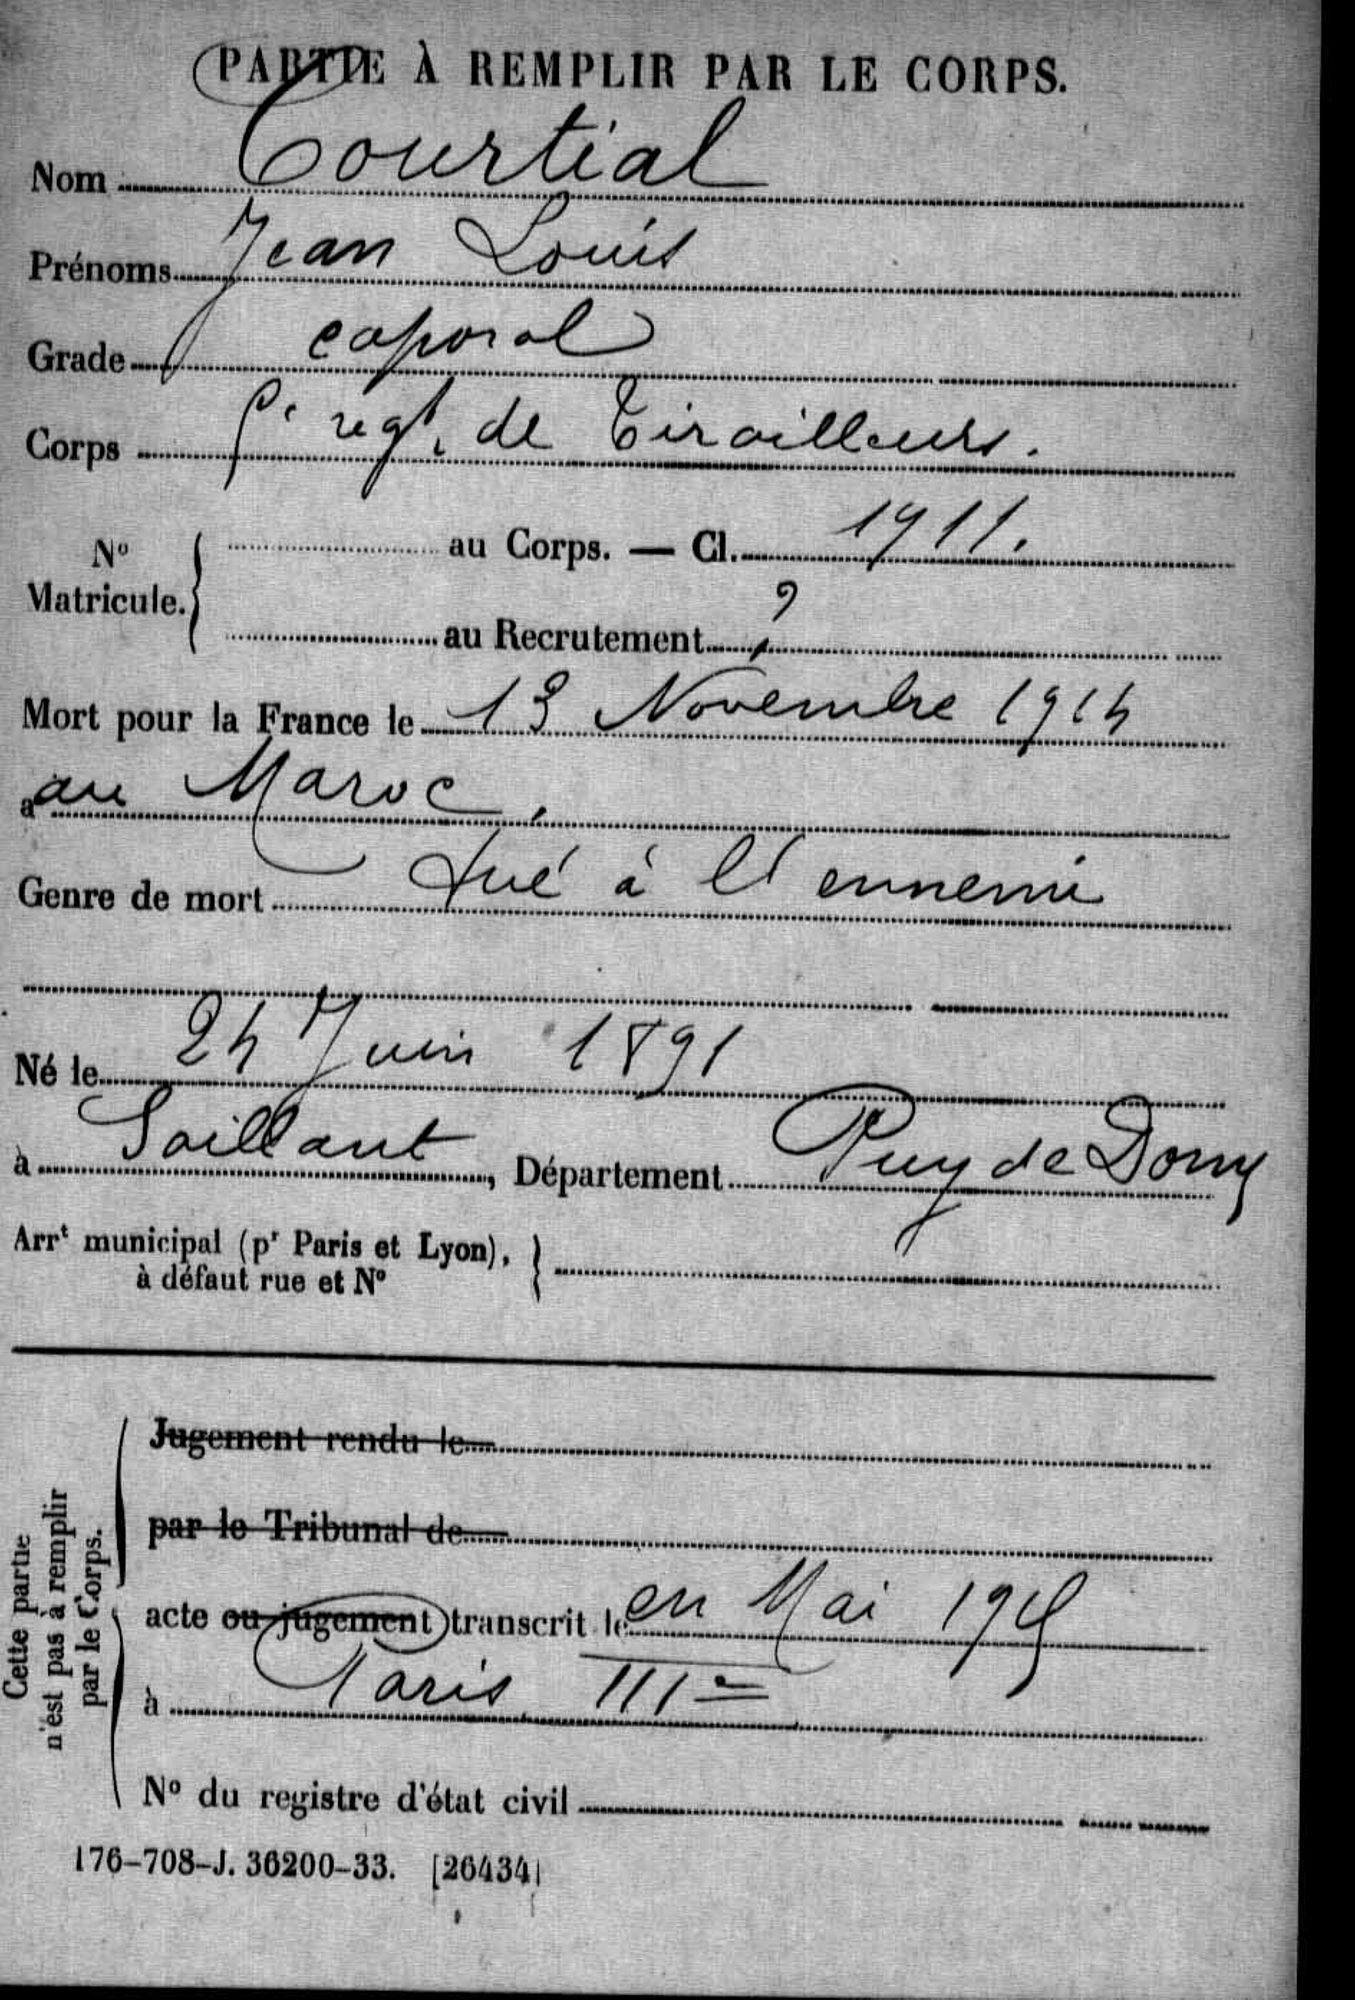 PARTIE À REMPLIR PAR LE CORPS.
Nom Courtial
Prénoms Jean Louis
Grade caporal
Corps regt. de Tirailleurs.
N° Matricule. au Corps. — Cl. 1911.
au Recrutement ?
Mort pour la France le 13 Novembre 1914
à au Maroc.
Genre de mort tué à l'ennemi
Né le 24 Juin 1891
à Saillant, Département Puy de Dome
Arrt municipal (pr Paris et Lyon),
à défaut rue et N°
Cette partie
n'est pas à remplir
par le Corps.
Jugement rendu le
par le Tribunal de
acte ou jugement transcrit le en Mai
à Paris IIIe
N° du registre d'état civil
176-708-J. 36200-33. [26434]